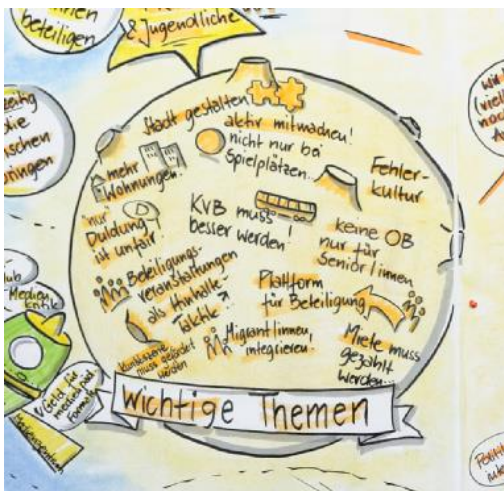 beteiligen
& Jugendliche
Stadt gestalten
aktiv mitmachen!
nicht nur bei
Spielplätzen...
mehr
Wohnungen
Fehler-
kultur
"nur"
Duldung
ist unfair!
KVB muss
besser werden!
keine OB
nur für
Senior|innen
Beteiligungs-
veranstaltungen
als Hinhalte-
Taktik?
Plattform
für Beteiligung
Migrant|innen
integrieren!
Miete muss
gezahlt
werden...
muss gefördert
werden
Wichtige Themen
Medien
Geld für